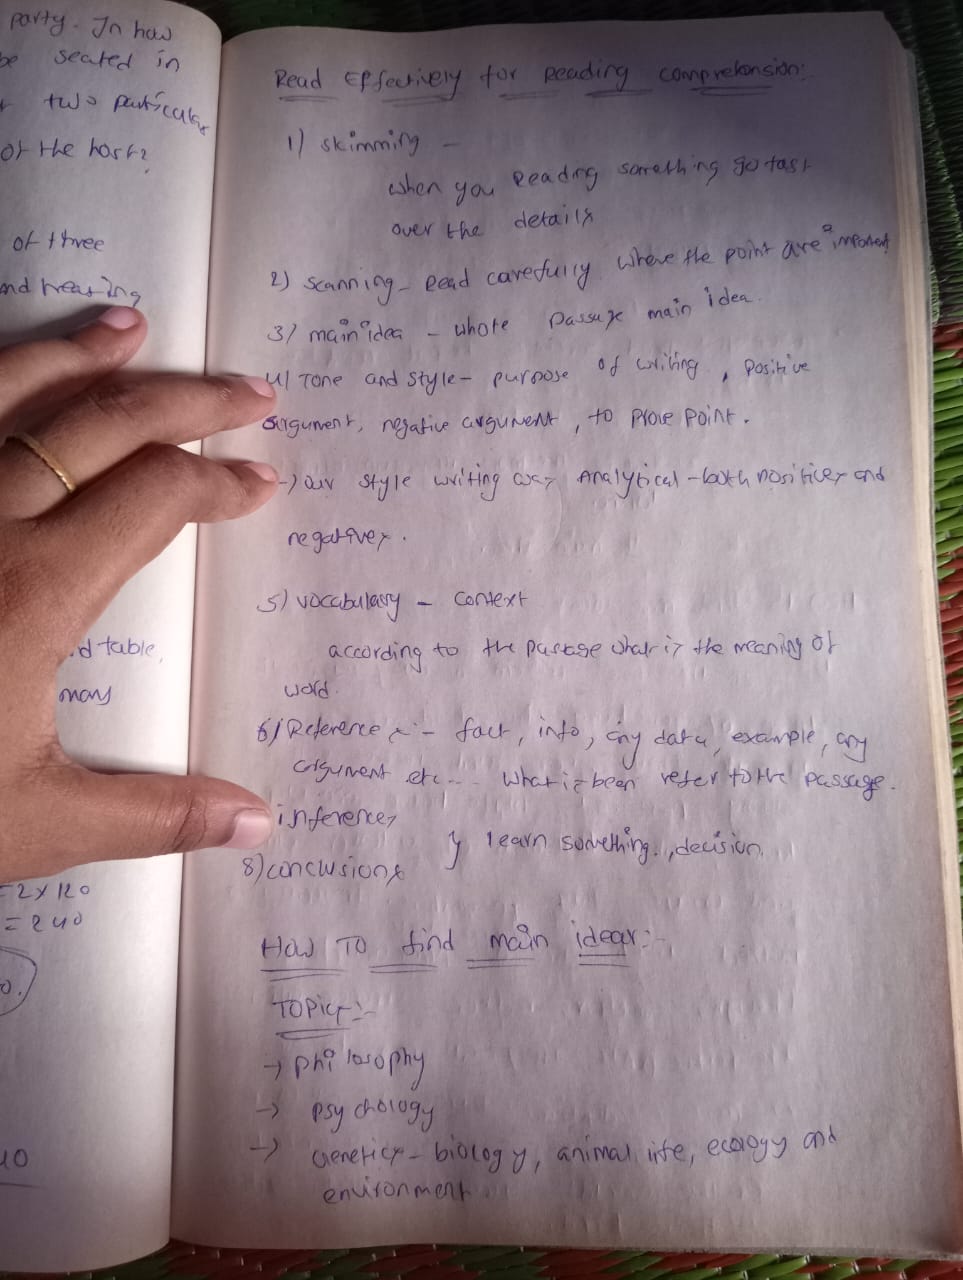 party. In how
be seated in
two particular
of the host?
of three
and hearing
d table,
many
= 2 x 120
= 240
0.
40
Read Effectively for Reading comprehension:
1) skimming -
when you Reading something go fast
over the details
2) scanning - Read carefully where the point are important
3) main idea - whole passage main idea.
4) Tone and style - purpose of writing, positive
argument, negative argument, to prove point.
-) our style writing way Analytical - both positives and
negatives.
5) vocabulary - context
according to the passage what is the meaning of
word.
6) References :- fact, info, any data, example, any
argument etc... what is been refer to the passage.
inferences
} learn something, decision.
8) conclusions
How To find main ideas:-
Topics:-
-) philosophy
-) psychology
-) Genetics - biology, animal life, ecology and
environment